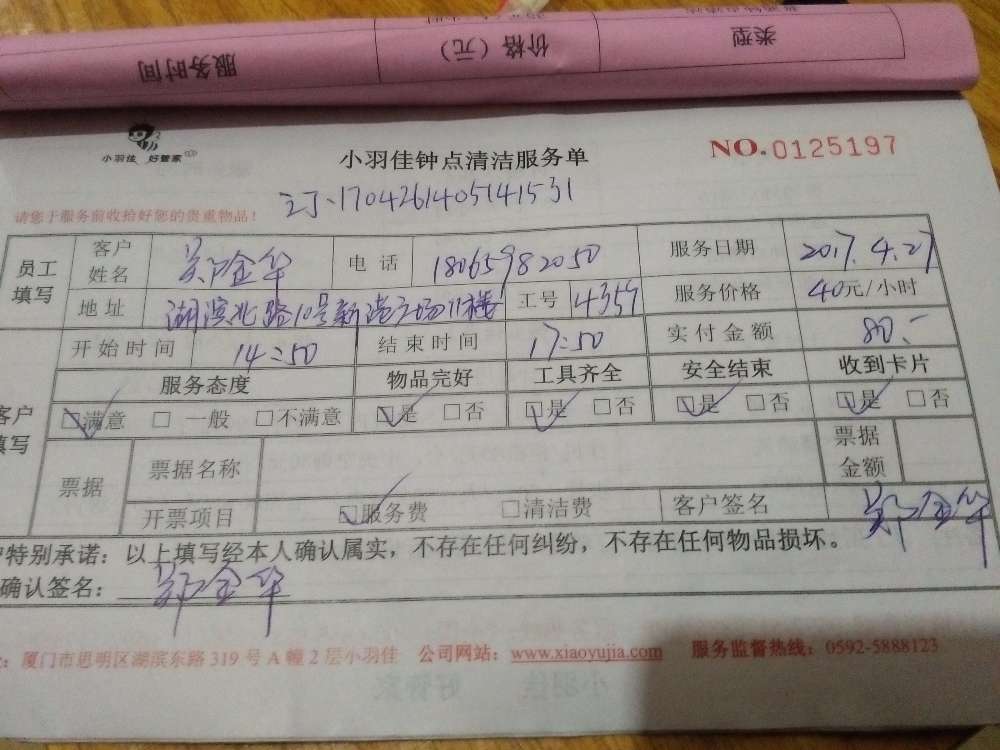 服务时间 价格（元） 类型
小羽佳 好管家
小羽佳钟点清洁服务单
NO.0125197
订:1704261405141531
请您于服务前收拾好您的贵重物品！
员工填写 客户姓名 郑金华 电话 18065982050 服务日期 2017.4.27
地址 湖滨北路10号新港广场11楼 工号 4359 服务价格 40元/小时
开始时间 14:50 结束时间 17:50 实付金额 80.-
客户填写 服务态度 物品完好 工具齐全 安全结束 收到卡片
☑满意 □一般 □不满意 ☑是 □否 ☑是 □否 ☑是 □否 ☑是 □否
票据 票据名称 票据金额
开票项目 ☑服务费 □清洁费 客户签名 郑金华
户特别承诺：以上填写经本人确认属实，不存在任何纠纷，不存在任何物品损坏。
确认签名：郑金华
厦门市思明区湖滨东路319号A幢2层小羽佳 公司网站：www.xiaoyujia.com 服务监督热线：0592-5888123